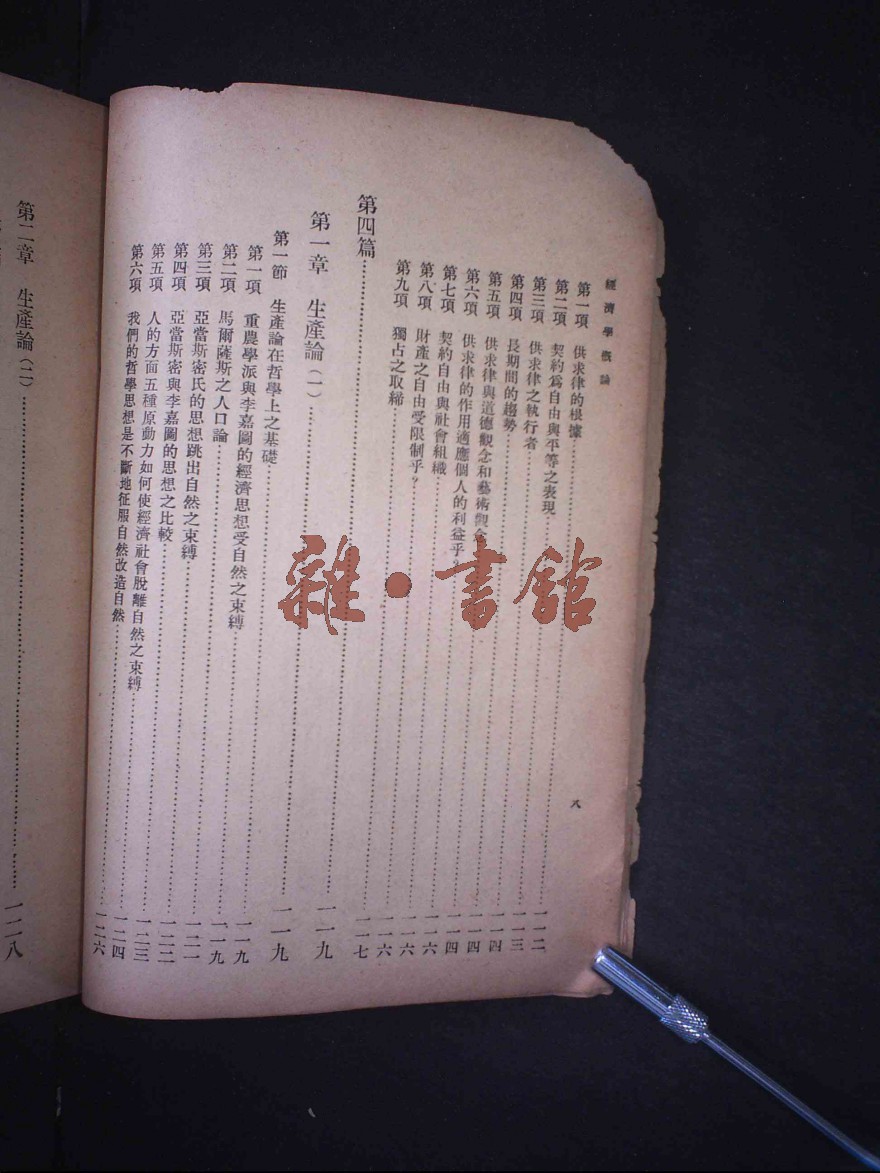 經濟學概論
第一項 供求律的根據
第二項 契約為自由與平等之表現 一一二
第三項 供求律之執行者 一一三
第四項 長期間的趨勢 一一四
第五項 供求律與道德觀念和藝術觀念 一一四
第六項 供求律的作用適應個人的利益乎？ 一一四
第七項 契約自由與社會組織 一一六
第八項 財產之自由受限制乎？ 一一六
第九項 獨占之取締 一一六
第四篇 一一七
第一章 生產論（一） 一一九
第一節 生產論在哲學上之基礎 一一九
第一項 重農學派與李嘉圖的經濟思想受自然之束縛 一一九
第二項 馬爾薩斯之人口論 一一九
第三項 亞當斯密氏的思想跳出自然之束縛 一二一
第四項 亞當斯密與李嘉圖的思想之比較 一二二
第五項 人的方面五種原動力如何使經濟社會脫離自然之束縛 一二三
第六項 我們的哲學思想是不斷地征服自然改造自然 一二四
一二六
八
第二章 生產論（二） 一二八
雜·書館